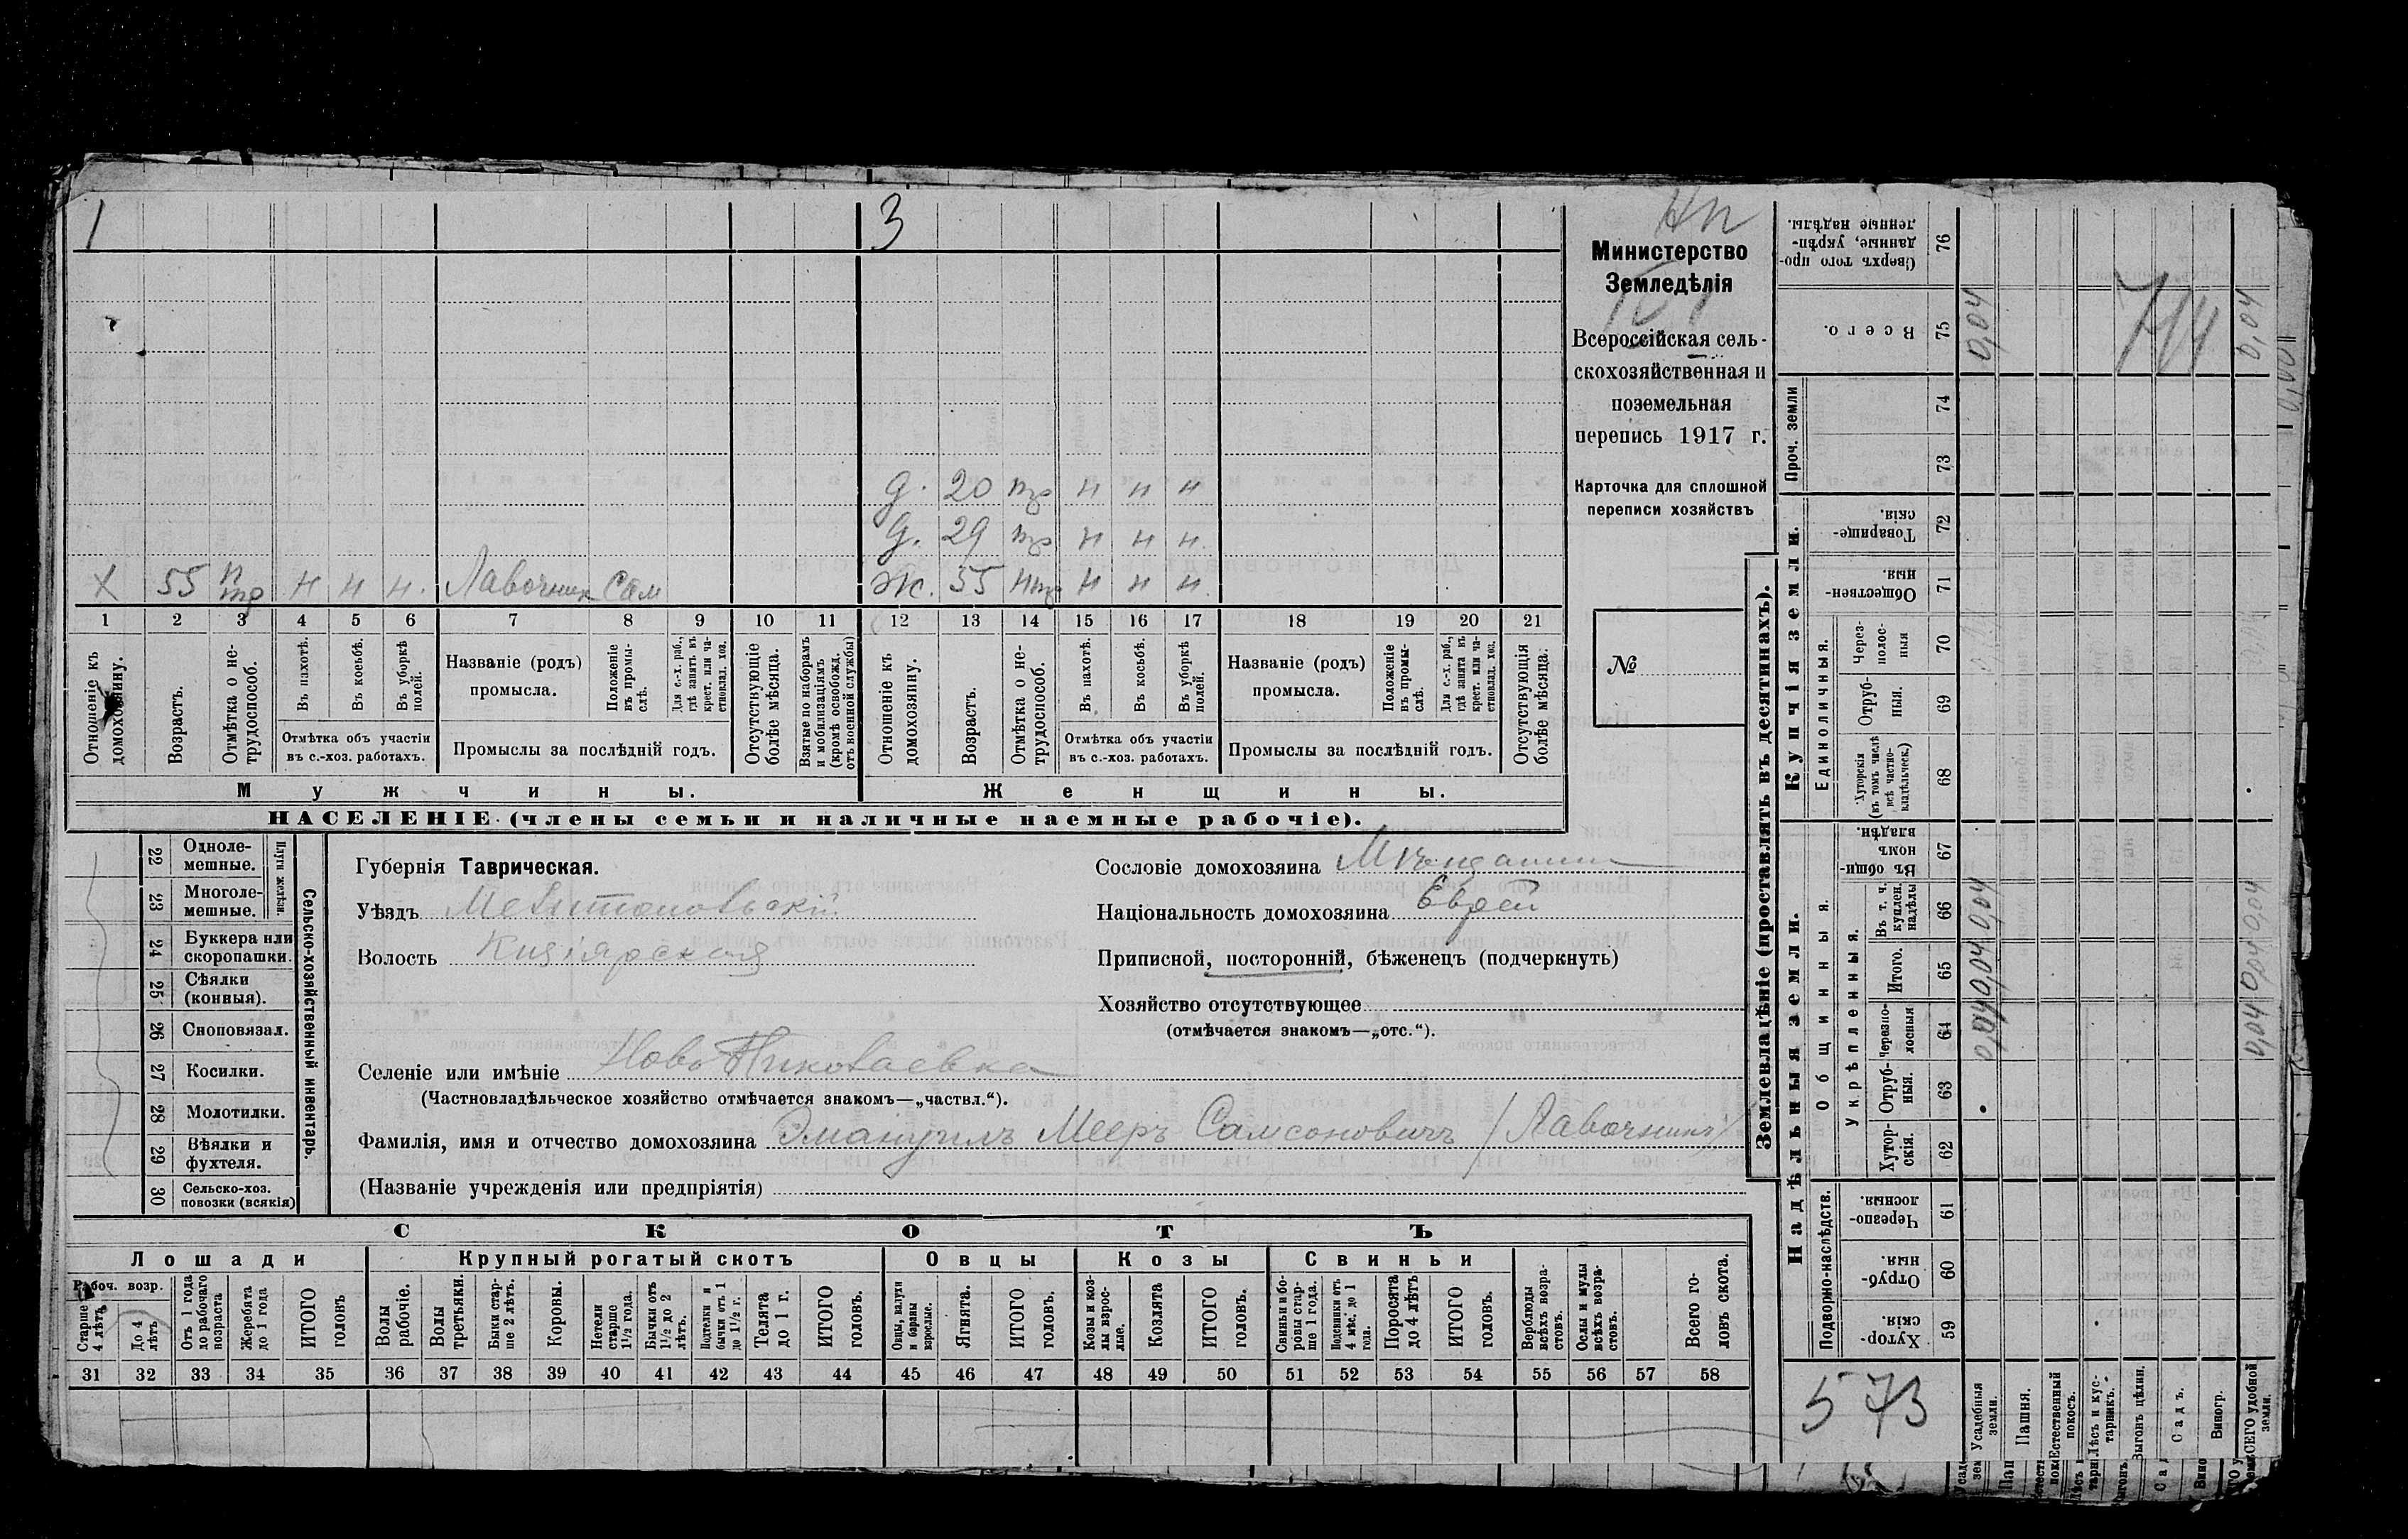 1
3
д. 20 тр н н н
д. 29 тр н н н.
х 55 н тр н н н. Лавочник сам
ж. 55 нтр н н н.
1 2 3 4 5 6 7 8 9 10 11 12 13 14 15 16 17 18 19 20 21
Отношеніе къ домохозяину.
Возрастъ.
Отмѣтка о не-
трудоспособ.
Въ пахотѣ.
Въ косьбѣ.
Въ уборкѣ полей.
Отмѣтка объ участіи
въ с.-хоз. работахъ.
Названіе (родъ)
промысла.
Положеніе
въ промы-
слѣ.
Для с.-х. раб.,
гдѣ занятъ въ
крест. или ча-
стновлад. хоз.
Промыслы за послѣдній годъ.
Отсутствующіе
болѣе мѣсяца.
Взятые по наборамъ
и мобилизаціямъ
(кромѣ освобожд.
отъ военной службы)
Отношеніе къ
домохозяину.
Возрастъ.
Отмѣтка о не-
трудоспособ.
Въ пахотѣ.
Въ косьбѣ.
Въ уборкѣ
полей.
Отмѣтка объ участіи
въ с.-хоз. работахъ.
Названіе (родъ)
промысла.
Положеніе
въ промы-
слѣ.
Для с.-х. раб.,
гдѣ занята въ
крест. или ча-
стновлад. хоз.
Промыслы за послѣдній годъ.
Отсутствующія
болѣе мѣсяца.
Мужчины.
Женщины.
НАСЕЛЕНІЕ (члены семьи и наличные наемные рабочіе).
Министерство
Земледѣлія
Всероссійская сель-
скохозяйственная и
поземельная
перепись 1917 г.
Карточка для сплошной
переписи хозяйствъ
№
22 Одноле-
мешные.
23 Многоле-
мешные.
Плуги желѣзн.
24 Буккера или
скоропашки.
25 Сѣялки
(конныя).
26 Сноповязал.
27 Косилки.
28 Молотилки.
29 Вѣялки и
фухтеля.
30 Сельско-хоз.
повозки (всякія)
Сельско-хозяйственный инвентарь.
Губернія Таврическая.
Уѣздъ Мелитопольскій
Волость Кизіярская
Сословіе домохозяина Мѣщанин
Національность домохозяина Еврей
Приписной, посторонній, бѣженецъ (подчеркнуть)
Хозяйство отсутствующее
(отмѣчается знакомъ—„отс.“).
Селеніе или имѣніе Ново Николаевка
(Частновладѣльческое хозяйство отмѣчается знакомъ—„частвл.“).
Фамилія, имя и отчество домохозяина Эмануилъ Мееръ Самсоновичъ /Лавочникъ/
(Названіе учрежденія или предпріятія)
СКОТЪ
Лошади
Крупный рогатый скотъ
Овцы
Козы
Свиньи
Рабоч. возр.
Старше
4 лѣтъ
До 4
лѣтъ
Отъ 1 года
до рабочаго
возраста
Жеребята
до 1 года
ИТОГО
головъ
Волы
рабочіе.
Волы
третьяки.
Быки стар-
ше 2 лѣтъ.
Коровы.
Нетели
старше
1½ года.
Бычки отъ
1½ до 2
лѣтъ.
Подтелки и
бычки отъ 1
до 1½ г.
Телята
до 1 г.
ИТОГО
головъ.
Овцы, валухи
и бараны
взрослые.
Ягнята.
ИТОГО
головъ.
Козы и коз-
лы взрос-
лые.
Козлята
ИТОГО
головъ.
Свиньи и бо-
ровы стар-
ше 1 года.
Подсвинки отъ
4 мѣс. до 1
года.
Поросята
до 4 лѣтъ
ИТОГО
головъ.
Верблюды
всѣхъ возра-
стовъ.
Ослы и мулы
всѣхъ возра-
стовъ.
Всего го-
ловъ скота.
31 32 33 34 35 36 37 38 39 40 41 42 43 44 45 46 47 48 49 50 51 52 53 54 55 56 57 58
Землевладѣніе (проставлять въ десятинахъ).
Надѣльныя земли.
Купчія земли.
Проч. земли
Подворно-наслѣдств.
Общинныя.
Укрѣпленныя.
Единоличныя.
Хутор-
скія. 59
Отруб-
ныя. 60
Черезпо-
лосныя. 61
Хутор-
скія. 62
Отруб-
ныя. 63
Черезпо-
лосныя 64
Итого. 65
Въ т. ч.
куплен.
надѣлы 66
Въ общин-
номъ
владѣн. 67
Хуторскія
(въ томъ числѣ
всѣ частно-
владѣльческ.) 68
Отруб-
ныя. 69
Через-
полос-
ныя 70
Обществен-
ныя. 71
Товарище-
скія. 72
73
74
Всего. 75
Сверхъ того про-
данные, укрѣп-
ленные надѣлы. 76
0,04 0,04 0,04
0,04
0,04 0,04 0,04
0,04
573
Усадебныя
земли.
Пашня.
Естественный
покосъ.
Лѣсъ и кус-
тарникъ.
Выгонъ цѣлин.
Садъ.
Виногр.
ВСЕГО удобной
земли.